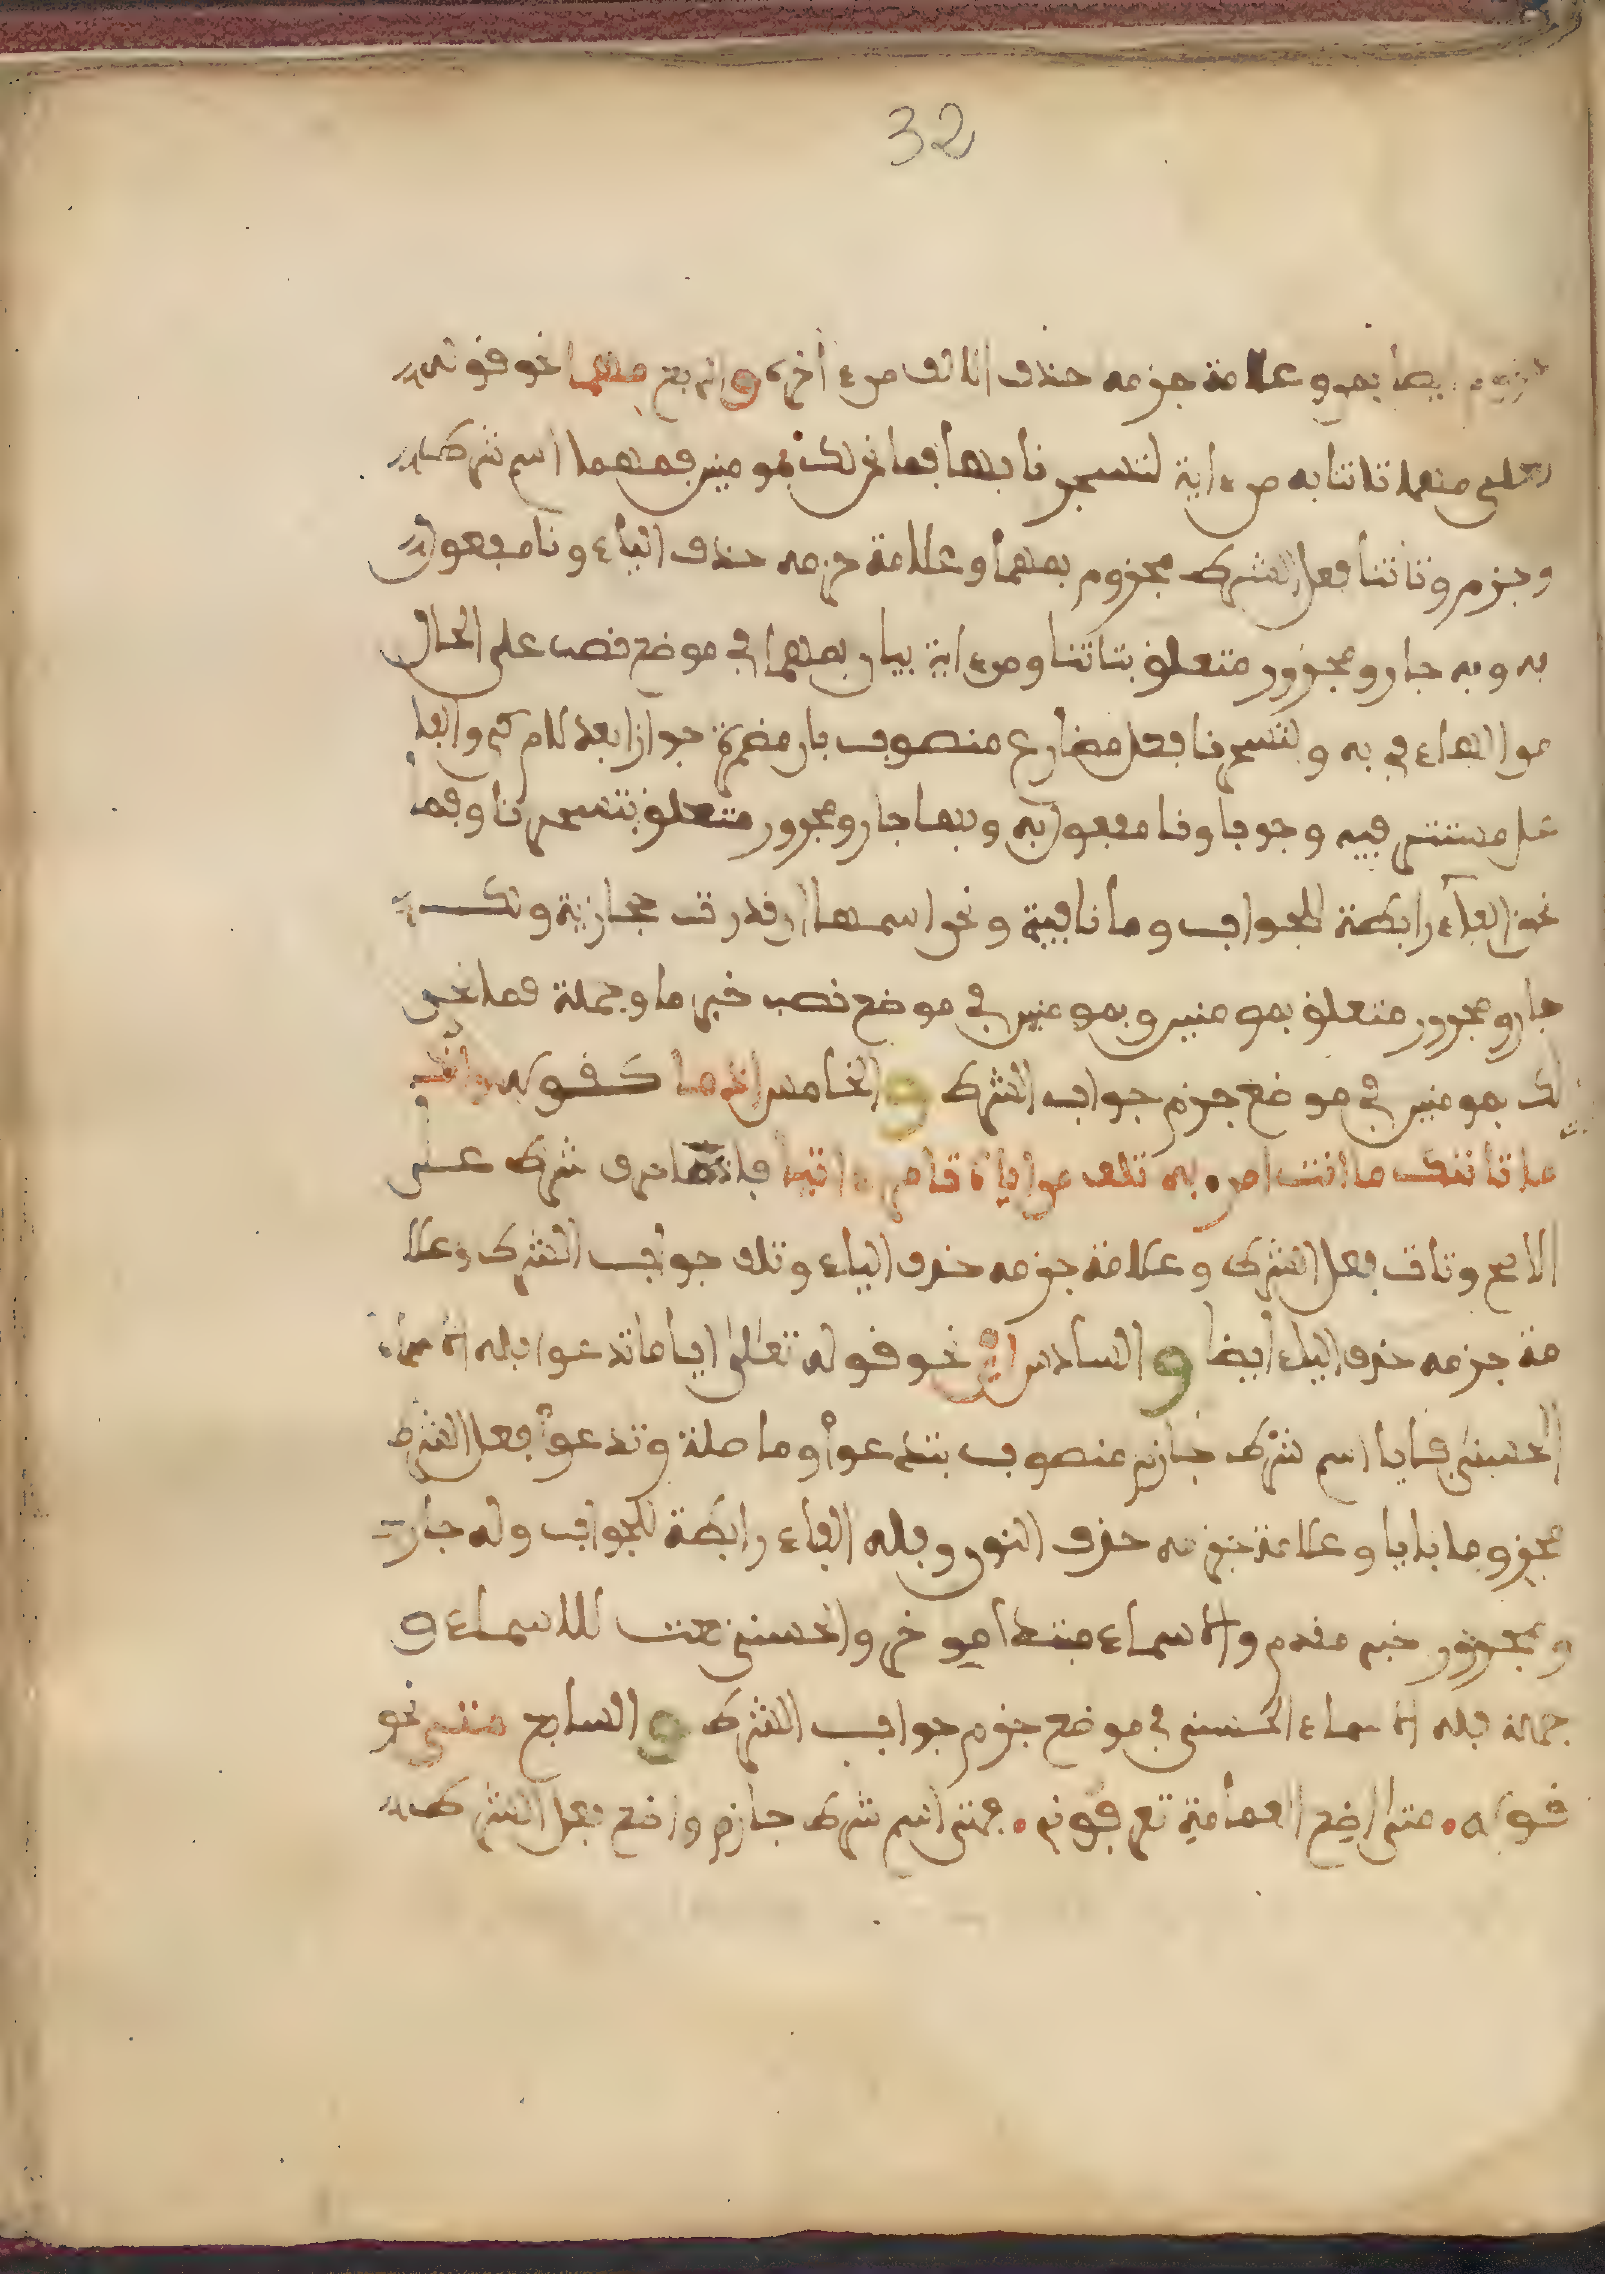 32
ايضا بمن وعلامة جزمه حذف الالف من ءاخره والرابع مهما نحو قوله
تعلى مهما تاتنا به من ءاية لتسحرنا بها فما نحن لك بمومنين فمهما اسم شرط
وجزم وتاتنا فعل الشرط مجزوم بمهما وعلامة جزمه حذف الياء ونا مفعول
به وبه جار ومجرور متعلق بتاتنا ومن ءاية بيان بمهما في موضع نصب على الحال
من الهاء في به ولتسحرنا فعل مضارع منصوب بان مضمرة جوازا بعد لام كي والفا
عل مستتر فيه وجوبا ونا مفعول به وبها جار ومجرور متعلق بتسحرنا وفما
نحن الفاء رابطة للجواب وما نافية ونحن اسمها ان قدرت حجازية ولك
جار ومجرور متعلق بمومنين وبمومنين في موضع نصب خبر ما وجملة فما نحن
لك بمومنين في موضع جزم جواب الشرط والخامس اذما كقوله وانك
ما تاتك ما انت امر به تلف من اياه تامر ءاتيا فاذما حرف شرط على
الاصح وتات فعل الشرط وعلامة جزمه حذف الياء وتلف جواب الشرط وعلا
مة جزمه حذف الياء ايضا والسادس اي نحو قوله تعلى ايا ما تدعوا فله الاسماء
الحسنى فايا اسم شرط جازم منصوب بتدعوا وما صلة وتدعوا فعل الشرط
مجزوما بايا وعلامة جزمه حذف النون وفله الفاء رابطة للجواب وله جار
ومجرور خبر مقدم والاسماء مبتدا موخر والحسنى نعت للاسماء و
جملة فله الاسماء الحسنى في موضع جزم جواب الشرط والسابع متى نحو
قوله متى اضع العمامة تعرفوني فمتى اسم شرط جازم واضع فعل الشرط